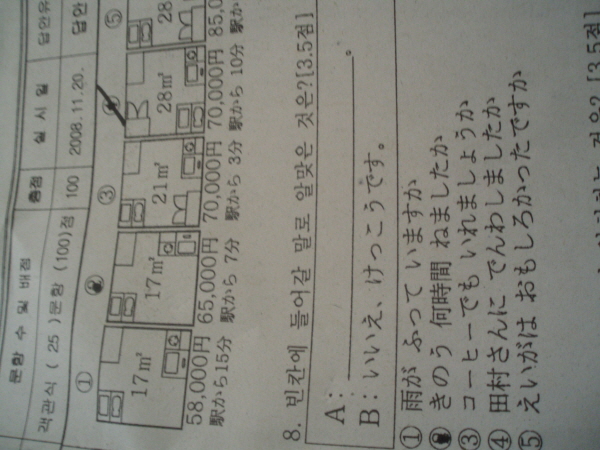 문항 수 및 배점
총점
실 시 일
답안
객관식 ( 25 )문항 (100)점
100
2008.11.20.
답안
①
③
⑤
17㎡
17㎡
21㎡
28㎡
28
58,000円
65,000円
70,000円
70,000円
85,0
駅から15分
駅から 7分
駅から 3分
駅から 10分
駅か
8. 빈칸에 들어갈 말로 알맞은 것은?[3.5점]
A: 。
B: いいえ、けっこうです。
① 雨が ふって いますか
きのう 何時間 ねましたか
③ コーヒーでも いれましょうか
④ 田村さんに でんわしましたか
⑤ えいがは おもしろかったですか
것은? [3.5점]